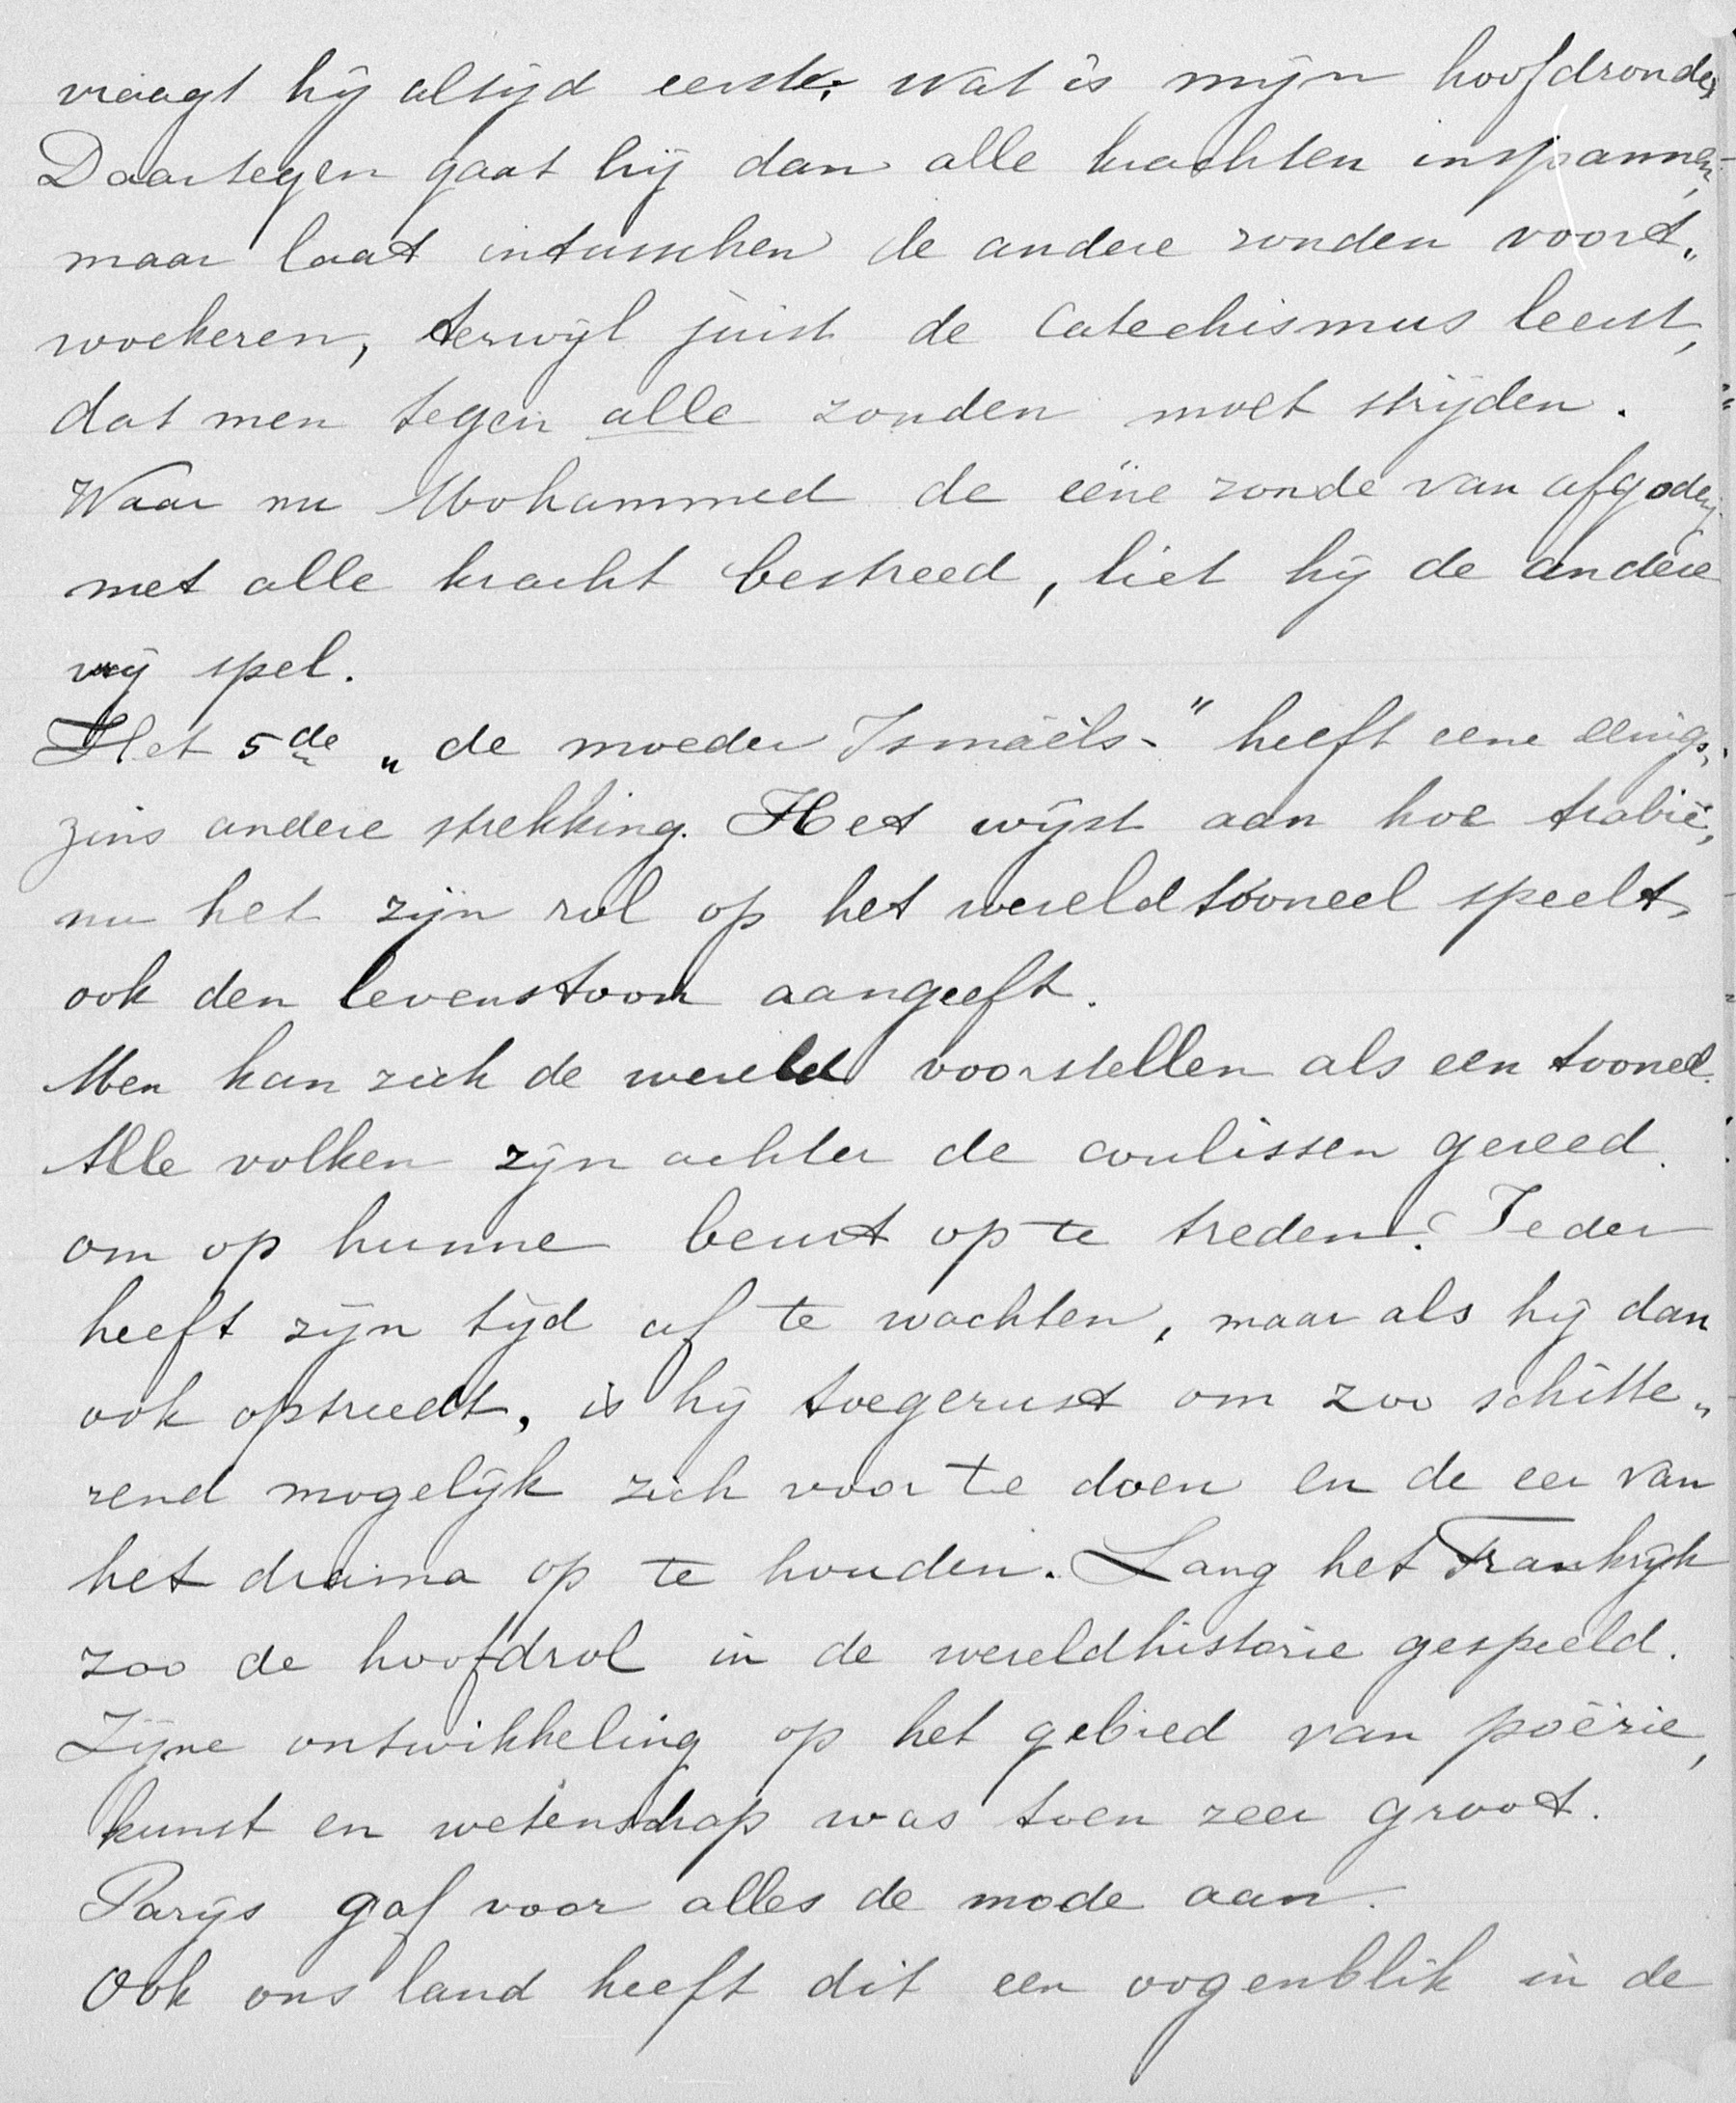 vraagt hij altijd eerst: Wat is mijn hoofdzonde,
Daartegen gaat hij dan alle krachten inspannen,
maar laat intusschen de andere zonden voort„
woekeren, terwijl juist de Catechismus leert,
dat men tegen alle zonden moet strijden.
Waar nu Mohammed de ééne zonde van afgodery
met alle kracht bestreed, liet hij de andere
vrij spel.
Het 5de „de moeder Ismaëls" heeft eene eenigs„
zins andere strekking. Het wijst aan hoe Arabië,
nu het zijn rol op het wereldtooneel speelt,
ook den levenstoon aangeeft.
Men kan zich de wereld voorstellen als een tooneel.
Alle volken zijn achter de coulissen gereed
om op hunne beurt op te treden. Ieder
heeft zijn tijd af te wachten, maar als hij dan
ook optreedt, is hij toegerust om zoo schitte„
rend mogelijk zich voor te doen en de eer van
het drama op te houden. Lang het Frankrijk
zoo de hoofdrol in de wereldhistorie gespeeld.
Zijne ontwikkeling op het gebied van poëzie,
kunst en wetenschap was toen zeer groot.
Parijs gaf voor alles de mode aan.
Ook ons land heeft dit een oogenblik in de